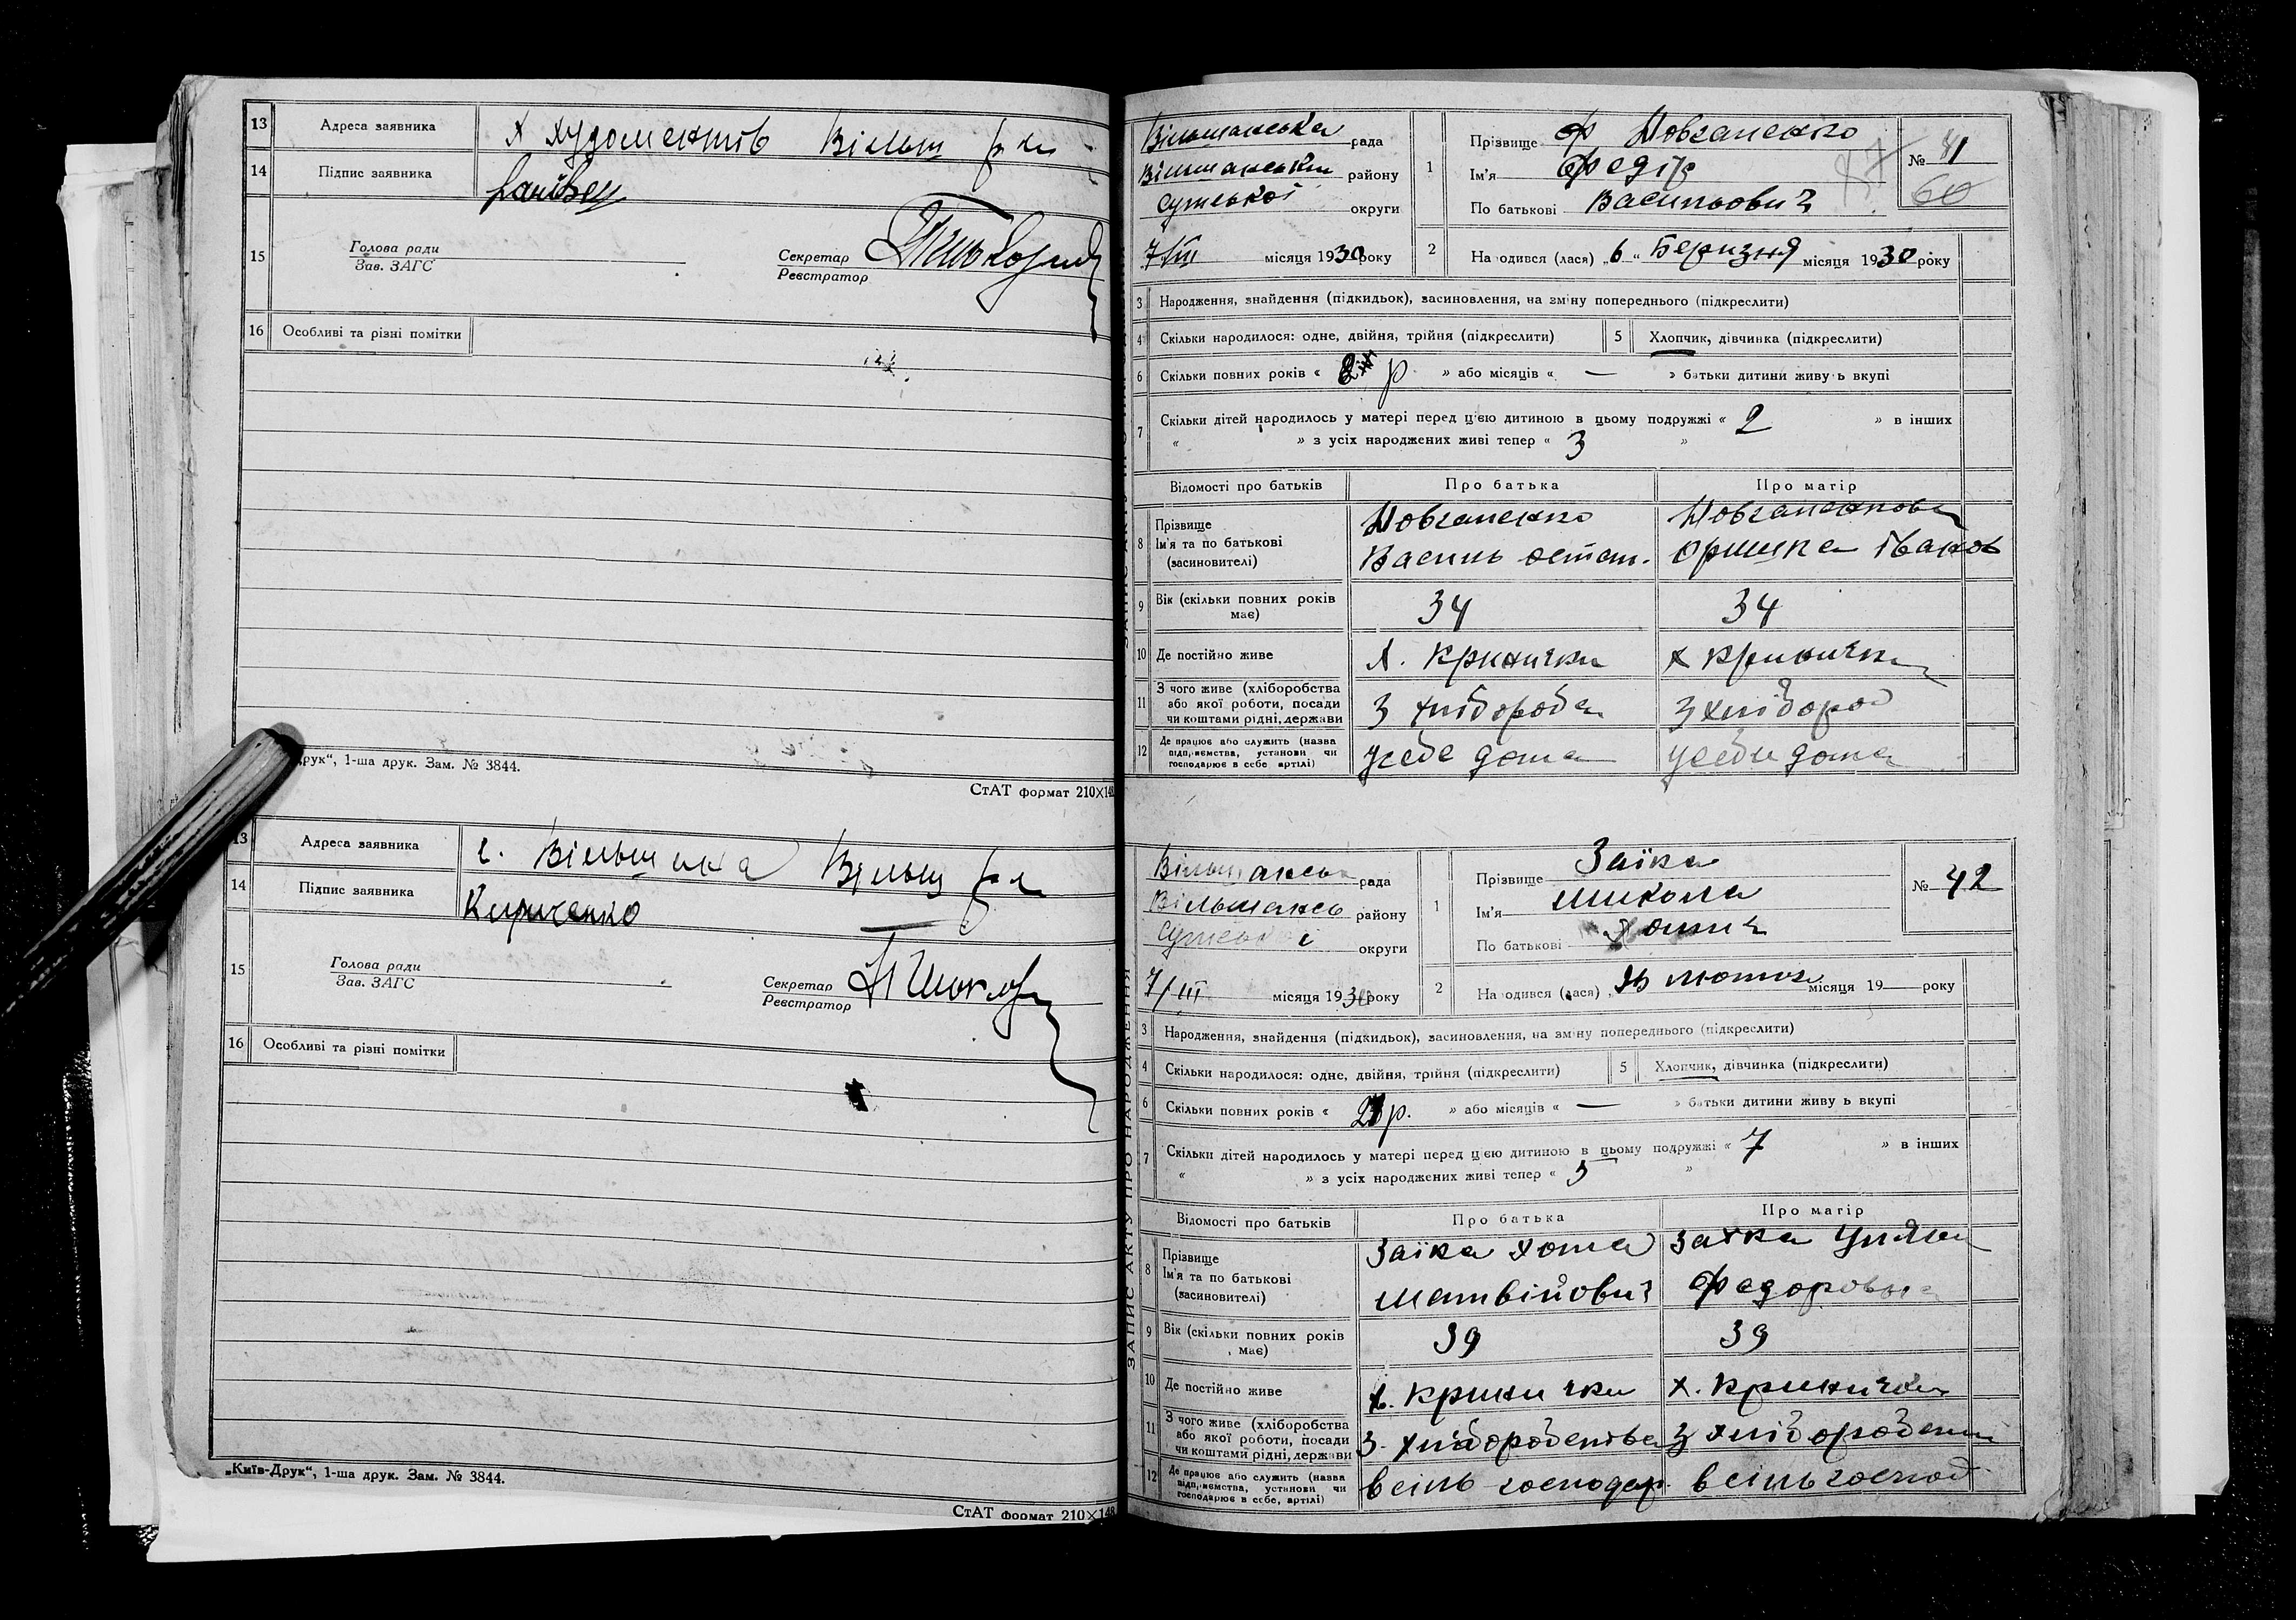 13 Адреса заявника х Худоментів Вільш р ки
14 Підпис заявника
15 Голова ради Секретар
Зав. ЗАГС Реєстратор
16 Особливі та різні помітки
друк“, 1-ша друк. Зам. № 3844.
СтАТ формат 210×148
13 Адреса заявника с. Вільшанка Вільш
14 Підпис заявника Кириченко
15 Голова ради Секретар
Зав. ЗАГС Реєстратор
16 Особливі та різні помітки
„Київ-Друк“, 1-ша друк. Зам. № 3844.
СтАТ формат 210×148
ЗАПИС АКТУ ПРО НАРОДЖЕННЯ
Вільшанська рада
Вільшанськи району
Сумської округи
7/III місяця 1930 року
1 Прізвище Довгаленко
Ім'я Федір
По батькові Васильович
№ 41
60
87
2 Народився (лася) „6“ Березня місяця 1930 року
3 Народження, знайдення (підкидьок), засиновлення, на зміну попереднього (підкреслити)
4 Скільки народилося: одне, двійня, трійня (підкреслити) 5 Хлопчик, дівчинка (підкреслити)
6 Скільки повних років « р » або місяців « — » батьки дитини живуть вкупі
7 Скільки дітей народилось у матері перед цією дитиною в цьому подружжі « 2 » в інших
« » з усіх народжених живі тепер « 3 »
Відомості про батьків Про батька Про матір
8 Прізвище Довгаленко Довгаленкова
Ім'я та по батькові Василь Остап. Оришка Іванов
(засиновителі)
9 Вік (скільки повних років має) 34 34
10 Де постійно живе х. Кринички х Кринички
11 З чого живе (хліборобства або якої роботи, посади чи коштами рідні, держави З хлібороба З хлібороб
12 Де працює або служить (назва підприємства, установи чи господарює в себе, артілі) у себе дома у себе дома
Вільшансь рада
Вільшансь району
Сумської округи
7/III місяця 1930 року
1 Прізвище Заїка
Ім'я Микола
По батькові Хомич
№ 42
2 Народився (лася) лютого місяця 19 — року
3 Народження, знайдення (підкидьок), засиновлення, на зміну попереднього (підкреслити)
4 Скільки народилося: одне, двійня, трійня (підкреслити) 5 Хлопчик, дівчинка (підкреслити)
6 Скільки повних років « р. » або місяців « — » батьки дитини живуть вкупі
7 Скільки дітей народилось у матері перед цією дитиною в цьому подружжі « 7 » в інших
« » з усіх народжених живі тепер « »
Відомості про батьків Про батька Про матір
8 Прізвище Заїка Хома Заїка Уляна
Ім'я та по батькові Матвійович Федоровна
(засиновителі)
9 Вік (скільки повних років має) 39 39
10 Де постійно живе х. Кринички х. Кринички
11 З чого живе (хліборобства або якої роботи, посади чи коштами рідні, держави З хліборобства З хліборобства
12 Де працює або служить (назва підприємства, установи чи господарює в себе, артілі) в сіль господар. в сіль господ